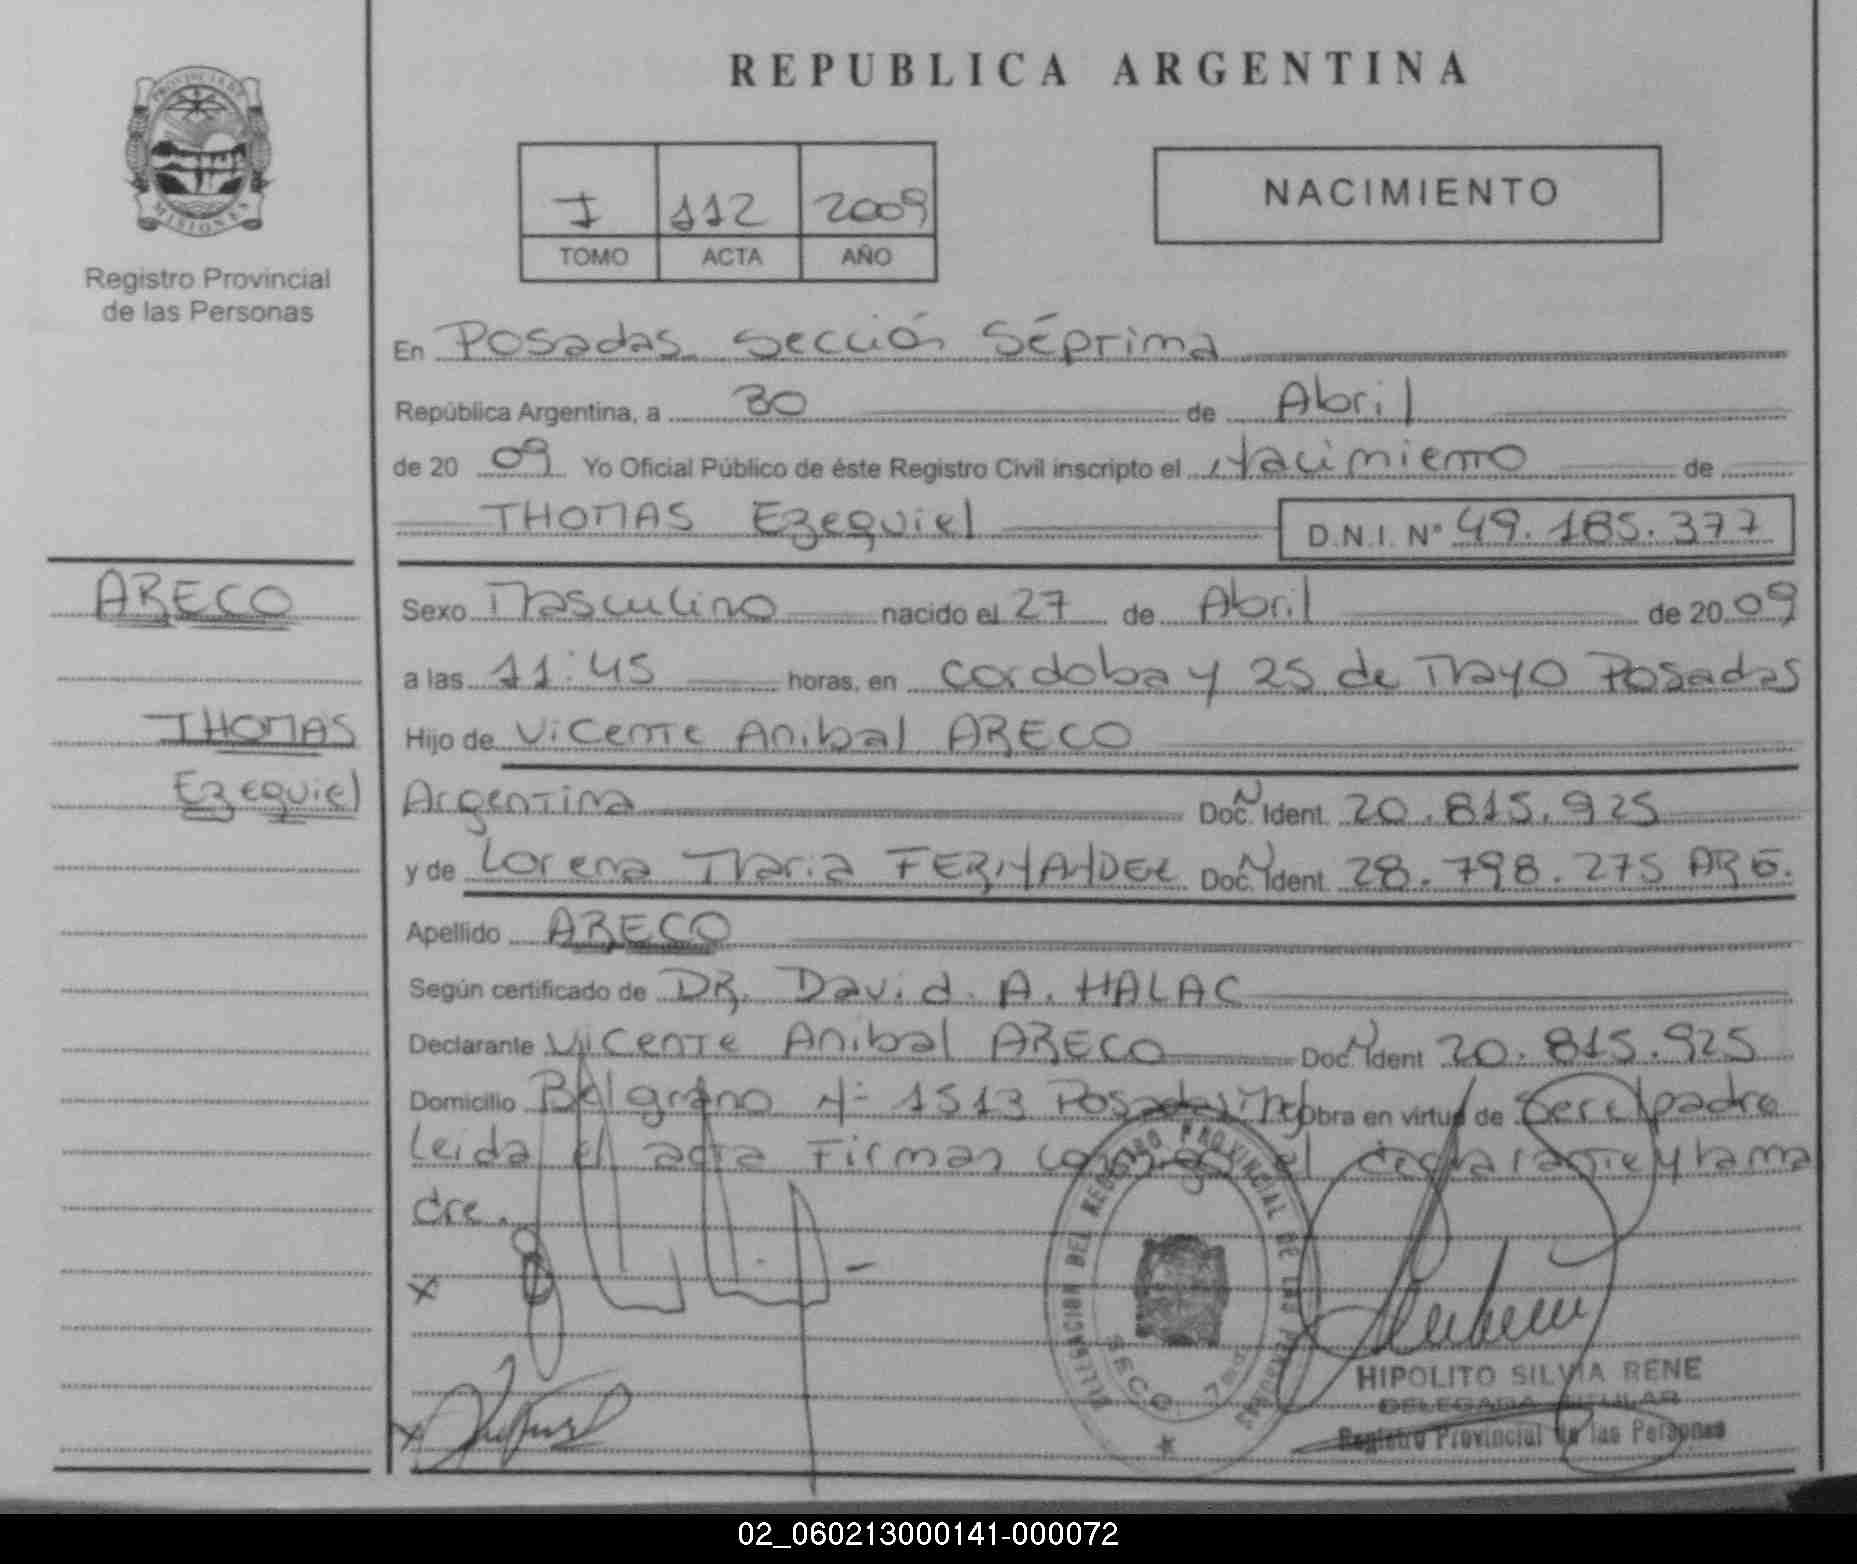 REPUBLICA ARGENTINA
PROVINCIA DE
MISIONES
Registro Provincial
de las Personas
I 112 2009
TOMO ACTA AÑO
NACIMIENTO
En Posadas sección Séptima
República Argentina, a 30 de Abril
de 20 09 Yo Oficial Público de éste Registro Civil inscripto el Nacimiento de
THOMAS Ezequiel D.N.I. Nº 49.185.377
ARECO
THOMAS
Ezequiel
Sexo Masculino nacido el 27 de Abril de 20 09
a las 11:45 horas, en cordoba y 25 de Mayo Posadas
Hijo de Vicente Anibal ARECO
Argentina Doc. N Ident. 20.815.925
y de Lorena Maria FERNANDEZ Doc. N Ident. 28.798.275 ARG.
Apellido ARECO
Según certificado de DR. David. A. HALAC
Declarante Vicente Anibal ARECO Doc. N Ident 20.815.925
Domicilio Belgrano Nº 1513 Posadas Mnes Obra en virtud de Ser el padre
Leida el acta Firman conmigo el declarante y la ma
dre.
x
x
DELEGACION DEL REGISTRO PROVINCIAL DE LAS PERSONAS
SECC. 7ma
HIPOLITO SILVIA RENE
DELEGADA TITULAR
Registro Provincial de las Personas
02_060213000141-000072